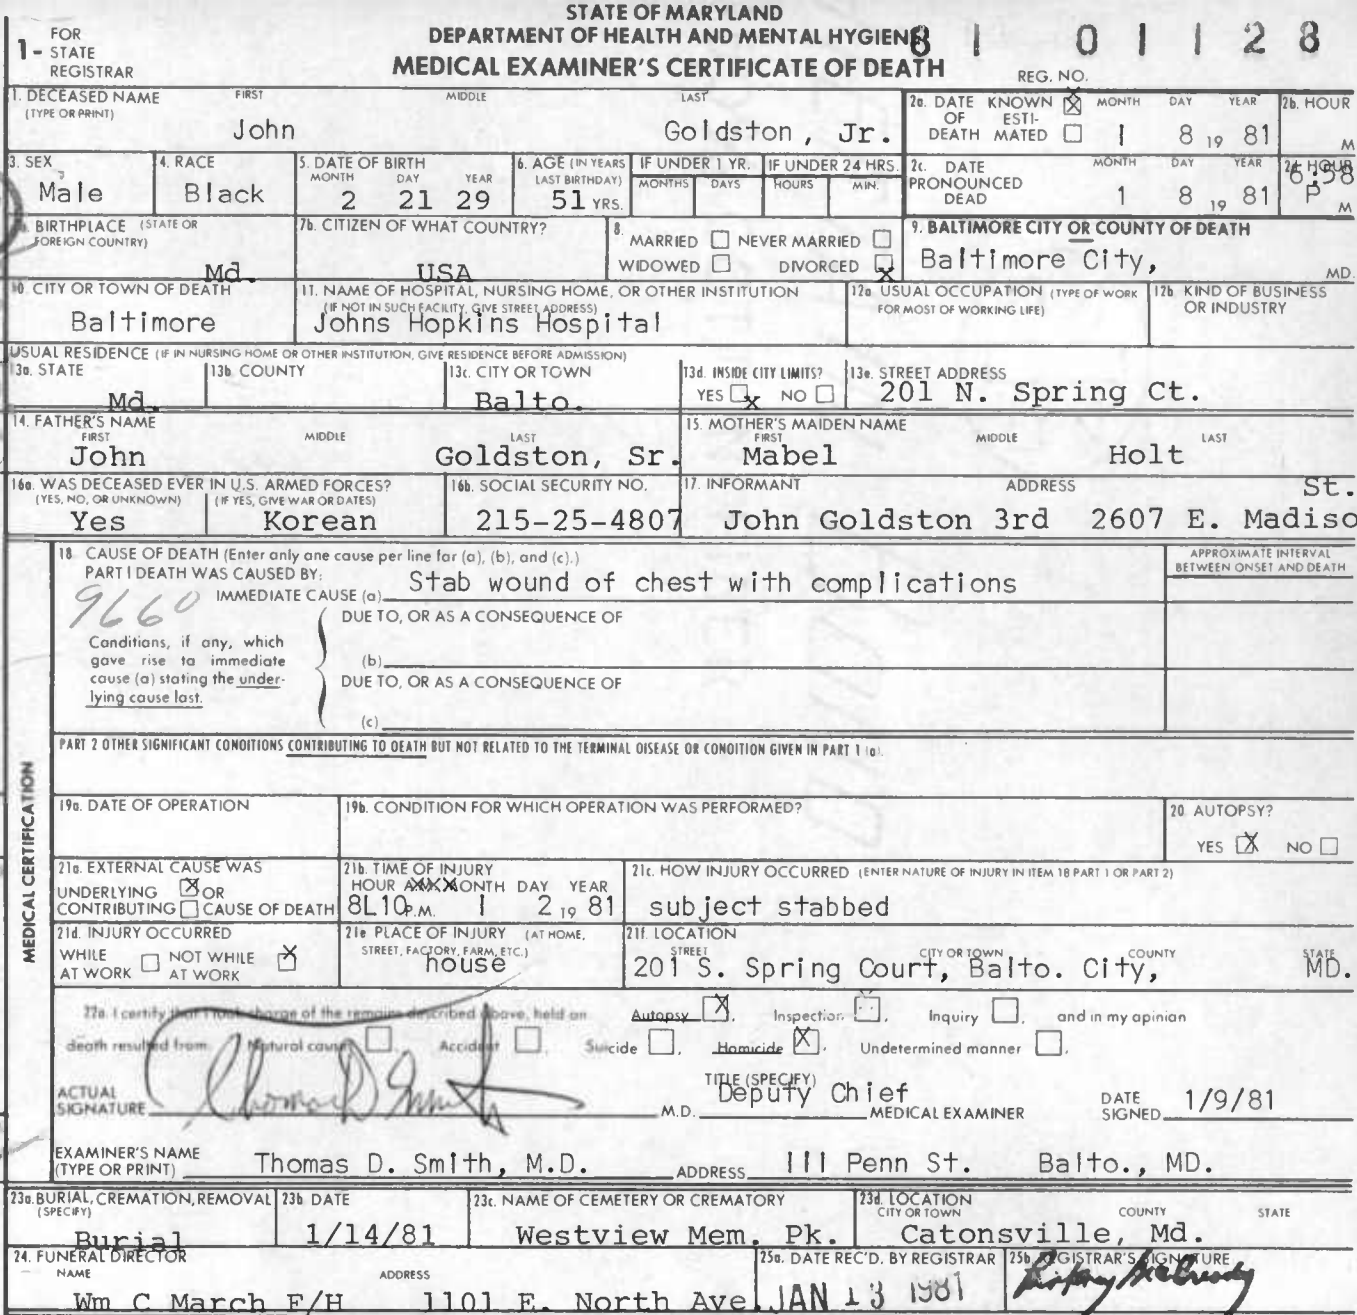 STATE OF MARYLAND
DEPARTMENT OF HEALTH AND MENTAL HYGIENE
MEDICAL EXAMINER'S CERTIFICATE OF DEATH
1- FOR STATE REGISTRAR
81 01128
REG. NO.
1. DECEASED NAME (TYPE OR PRINT) FIRST MIDDLE LAST
John Goldston, Jr.
2a. DATE OF DEATH KNOWN X ESTIMATED MONTH DAY YEAR
1 8 19 81
2b. HOUR M
3. SEX
Male
4. RACE
Black
5. DATE OF BIRTH MONTH DAY YEAR
2 21 29
6. AGE (IN YEARS LAST BIRTHDAY)
51 YRS.
IF UNDER 1 YR. MONTHS DAYS
IF UNDER 24 HRS. HOURS MIN.
2c. DATE PRONOUNCED DEAD MONTH DAY YEAR
1 8 19 81
HOUR
6:58
P M
BIRTHPLACE (STATE OR FOREIGN COUNTRY)
Md.
7b. CITIZEN OF WHAT COUNTRY?
USA
8. MARRIED NEVER MARRIED
WIDOWED DIVORCED X
9. BALTIMORE CITY OR COUNTY OF DEATH
Baltimore City, MD.
10. CITY OR TOWN OF DEATH
Baltimore
11. NAME OF HOSPITAL, NURSING HOME, OR OTHER INSTITUTION
(IF NOT IN SUCH FACILITY, GIVE STREET ADDRESS)
Johns Hopkins Hospital
12a. USUAL OCCUPATION (TYPE OF WORK FOR MOST OF WORKING LIFE)
12b KIND OF BUSINESS OR INDUSTRY
USUAL RESIDENCE (IF IN NURSING HOME OR OTHER INSTITUTION, GIVE RESIDENCE BEFORE ADMISSION)
13a. STATE
Md.
13b COUNTY
13c. CITY OR TOWN
Balto.
13d. INSIDE CITY LIMITS?
YES X NO
13e. STREET ADDRESS
201 N. Spring Ct.
14. FATHER'S NAME FIRST MIDDLE LAST
John Goldston, Sr.
15. MOTHER'S MAIDEN NAME FIRST MIDDLE LAST
Mabel Holt
16a. WAS DECEASED EVER IN U.S. ARMED FORCES?
(YES, NO, OR UNKNOWN) (IF YES, GIVE WAR OR DATES)
Yes Korean
16b. SOCIAL SECURITY NO.
215-25-4807
17. INFORMANT ADDRESS
St.
John Goldston 3rd 2607 E. Madiso
MEDICAL CERTIFICATION
18. CAUSE OF DEATH (Enter only one cause per line for (a), (b), and (c).)
PART I DEATH WAS CAUSED BY:
IMMEDIATE CAUSE (a) Stab wound of chest with complications
APPROXIMATE INTERVAL BETWEEN ONSET AND DEATH
9660
DUE TO, OR AS A CONSEQUENCE OF
Conditions, if any, which
gave rise to immediate
cause (a) stating the under-
lying cause last.
(b)
DUE TO, OR AS A CONSEQUENCE OF
(c)
PART 2 OTHER SIGNIFICANT CONDITIONS CONTRIBUTING TO DEATH BUT NOT RELATED TO THE TERMINAL DISEASE OR CONDITION GIVEN IN PART 1 (a).
19a. DATE OF OPERATION
19b. CONDITION FOR WHICH OPERATION WAS PERFORMED?
20 AUTOPSY?
YES X NO
21a. EXTERNAL CAUSE WAS
UNDERLYING X OR
CONTRIBUTING CAUSE OF DEATH
21b. TIME OF INJURY
HOUR MONTH DAY YEAR
8L10 P.M. 1 2 19 81
21c. HOW INJURY OCCURRED (ENTER NATURE OF INJURY IN ITEM 18 PART 1 OR PART 2)
subject stabbed
21d. INJURY OCCURRED
WHILE AT WORK NOT WHILE AT WORK X
21e PLACE OF INJURY (AT HOME, STREET, FACTORY, FARM, ETC.)
house
21f. LOCATION STREET CITY OR TOWN COUNTY STATE
201 S. Spring Court, Balto. City, MD.
22a. I certify that I took charge of the remains described above, held an Autopsy X, Inspection, Inquiry, and in my opinion
death resulted from Natural cause, Accident, Suicide, Homicide X, Undetermined manner.
ACTUAL SIGNATURE Thomas D Smith M.D.
TITLE (SPECIFY)
Deputy Chief MEDICAL EXAMINER
DATE SIGNED 1/9/81
EXAMINER'S NAME (TYPE OR PRINT) Thomas D. Smith, M.D.
ADDRESS 111 Penn St. Balto., MD.
23a. BURIAL, CREMATION, REMOVAL (SPECIFY)
Burial
23b DATE
1/14/81
23c. NAME OF CEMETERY OR CREMATORY
Westview Mem. Pk.
23d. LOCATION CITY OR TOWN COUNTY STATE
Catonsville, Md.
24. FUNERAL DIRECTOR
NAME ADDRESS
Wm C March F/H 1101 E. North Ave
25a. DATE REC'D. BY REGISTRAR
JAN 13 1981
25b. REGISTRAR'S SIGNATURE